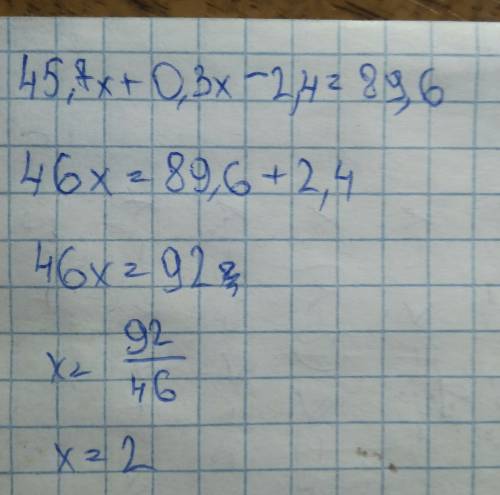 45,7x+0,3x-2,4=89,6
46x=89,6+2,4
46x=92
x=92/46
x=2